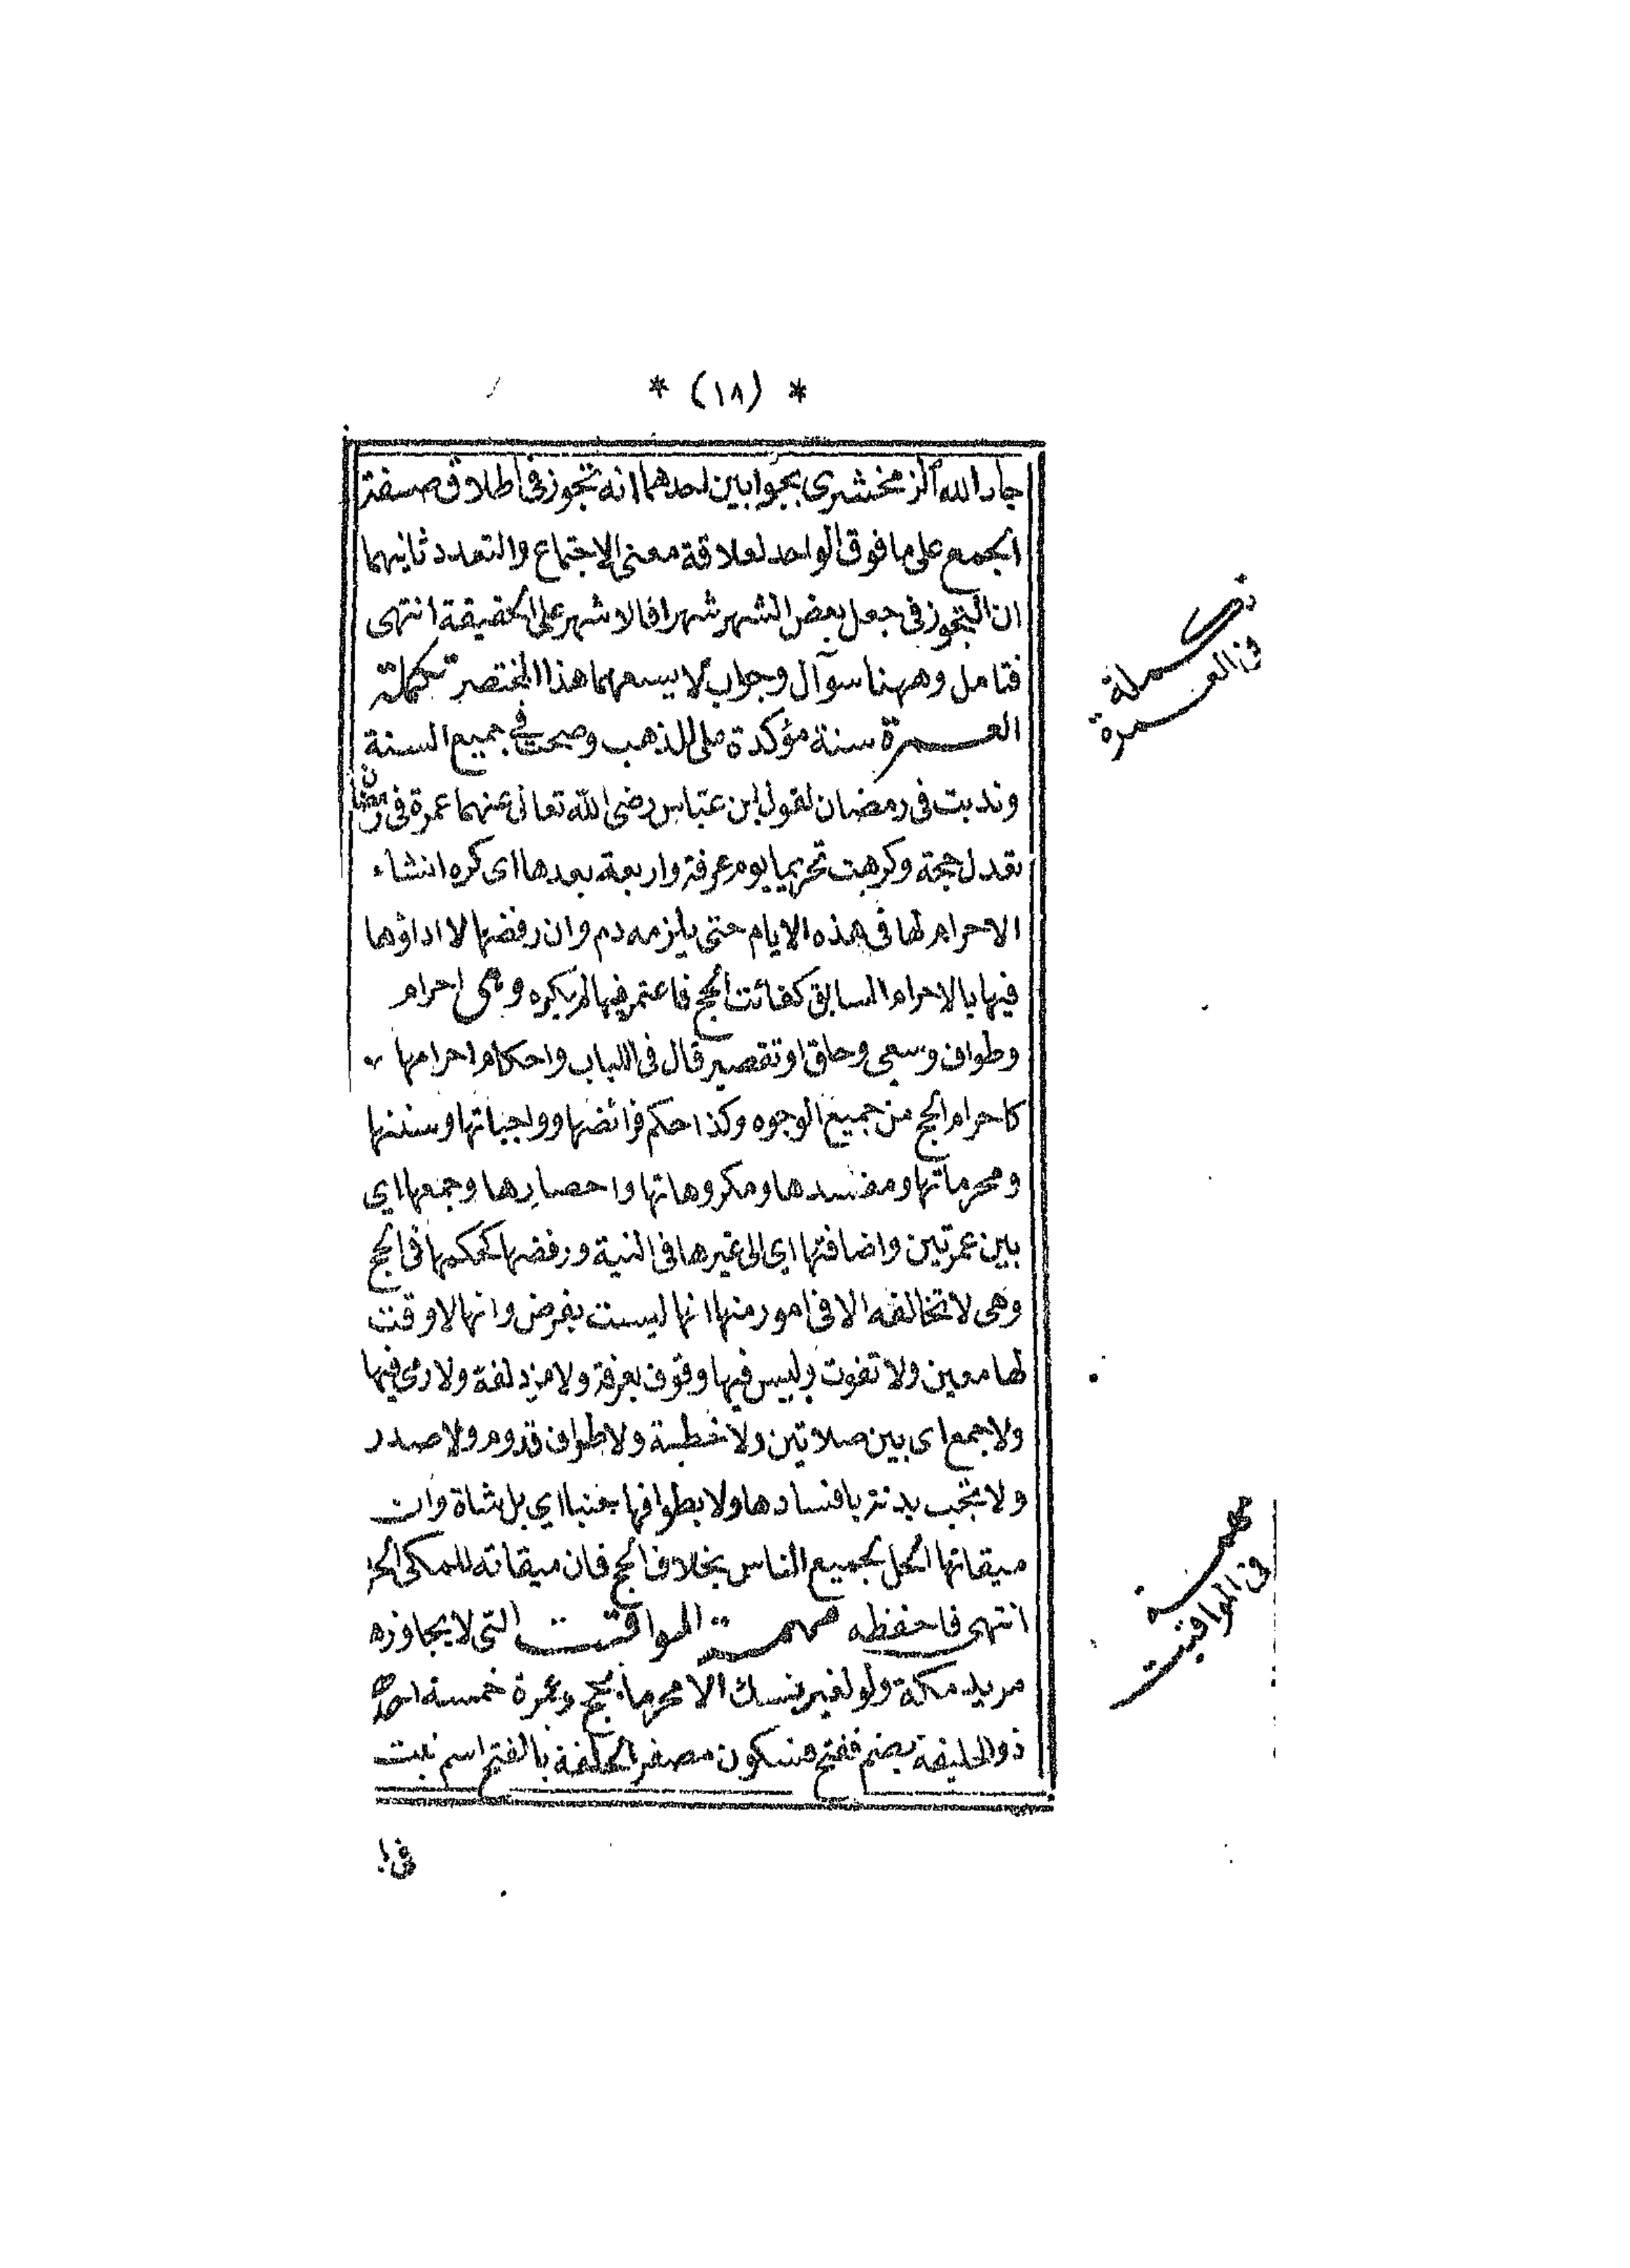 * (١٨) *
جار الله الزمخشرى بجوابين احدهما انه تجوز فى اطلاق صيغة
الجمع على ما فوق الواحد لعلاقة معنى الاجتماع والتعدد ثانيهما
ان التجوز فى جعل بعض الشهر شهرا فالاشهر على الحقيقة انتهى
فتامل وههنا سوآل وجواب لا يسعهما هذا المختصر تكملة
العمرة سنة مؤكدة على المذهب وصحت فى جميع السنة
وندبت فى رمضان لقول ابن عباس رضى الله تعالى عنهما عمرة فى رمضان
تعدل حجة وكرهت تحريما يوم عرفة واربعة بعدها اى كره انشاء
الاحرام لها فى هذه الايام حتى يلزمه دم وان رفضها لا اداؤها
فيها بالاحرام السابق كفائت الحج فاعتمر فيها لم يكره وهى احرام
وطواف وسعى وحلق او تقصير قال فى اللباب واحكام احرامها
كاحرام الحج من جميع الوجوه وكذا حكم فرائضها وواجباتها وسننها
ومحرماتها ومفسدها ومكروهاتها واحصارها وجمعها اي
بين عمرتين واضافتها اي الى غيرها فى النية ورفضها كحكمها فى الحج
وهى لا تخالفه الا فى امور منها انها ليست بفرض وانها لا وقت
لها معين ولا تفوت وليس فيها وقوف بعرفة ولا مزدلفة ولا رمى فيها
ولا جمع اى بين صلاتين ولا خطبة ولا طواف قدوم ولا صدر
ولا تجب بدنة بافسادها ولا بطوافها جنبا اي بل شاة وان
ميقاتها الحل لجميع الناس بخلاف الحج فان ميقاته للمكى الحرم
انتهى فاحفظه مهمة المواقيت التى لا يجاوزه
مريد مكة ولو لغير نسك الا محرما بحج وعمرة خمسة
ذو الحليفة بضم ففتح فسكون مصغر الحلفة بالفتح اسم نبت
فى ا
تكملة
فى العمرة
مهمة
فى المواقيت